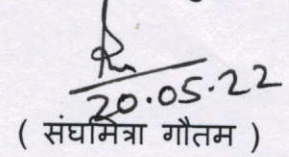 20.05.22
( संघमित्रा गौतम )